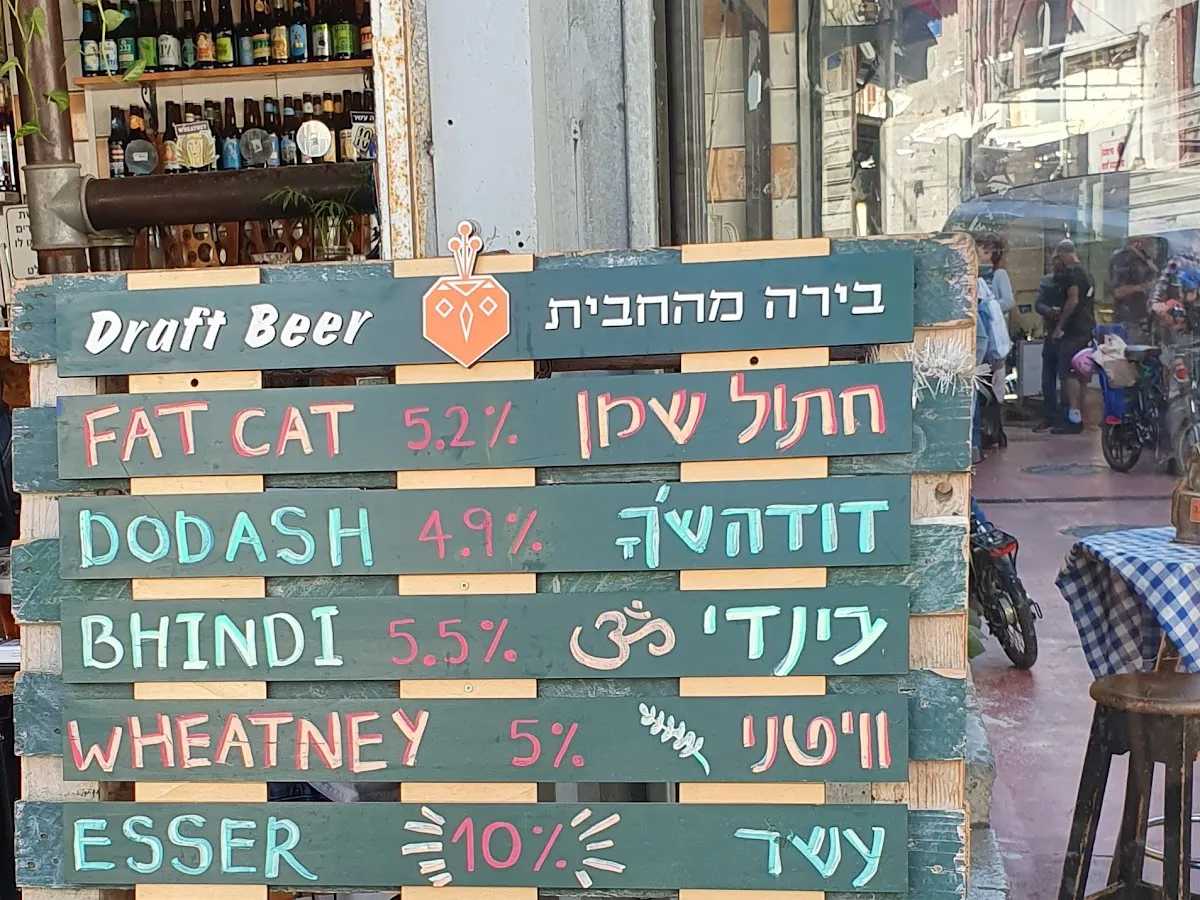 Draft Beer בירה מהחבית
FAT CAT 5.2% חתול שמן
DODASH 4.9% דודהש'ך
BHINDI 5.5% ॐ בינדי
WHEATNEY 5% וויטני
ESSER 10% עשר